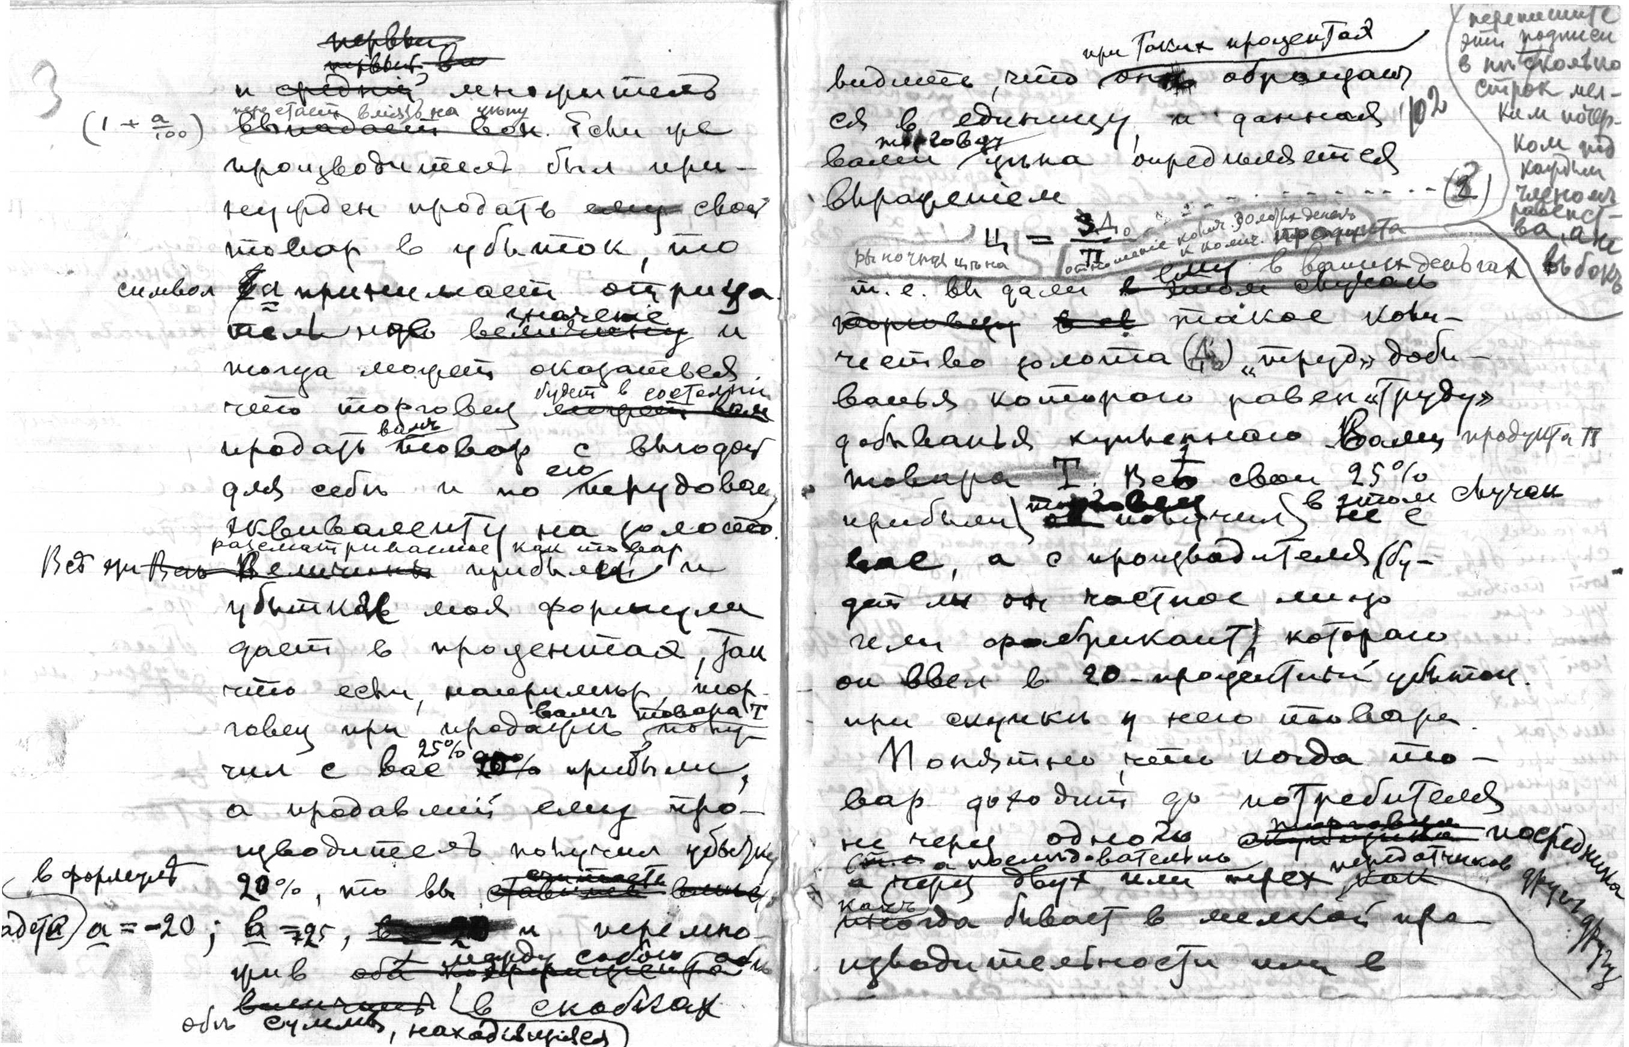 3
первый
и средний множитель
(1 + a/100)
перестаетъ влiять на цѣну
выпадаетъ вон. Если же
производитель был при-
нужден продать ему свой
товар в убыток, то
символ а принимает отрица
тельную величину и
значенiе
тогда может оказаться
что торговец может вам
будет в состоянiи
продать товар с выгодой
вамъ
для себя и по его трудовому
эквиваленту на золото.
разсматриваемое как товар
Всѣ эти Величины прибыли и
убытка моя формула
дает в процентах, так
что если, например, тор-
говец при продажѣ полу-
вамъ товара Т
чил с вас 25% прибыли,
а продавшiй ему про-
изводитель получил убытку
20%, то вы
в формулѣ
a = -20; в = 25, и перемно-
жив
между собою обѣ
в скобках
обѣ суммы, находящiяся
при таких процентах
видите, что они обращают
ся в единицу, и данная
102
вами торговцу цѣна определяется
выраженiем (2)
Ц = Д₀/П
рыночная цѣна
отношенiе колич. золотых денег
к колич. продукта
т. е. вы дали ему в ваших деньгах
в этом случаѣ
торговцу такое коли-
чество золота (Д₀) «труд» добы-
ванья котораго равен «труду»
добыванья купленнаго Вами продукта П
товара Т. Всѣ свои 25%
прибыли торговец получил в этом случаѣ не с
вас, а с производителя (бу-
дет ли он частное лицо
или фабрикант), котораго
он ввел в 20-процентный убыток
при скупкѣ у него товара.
Понятно, что когда то-
вар доходит до потребителя
не через одного посредника
а последовательно
а через двух или трех передатчиков друг другу
какъ
иногда бывает в мелкой про-
изводительности или в
перепишите
эти подписи
в нѣсколько
строк мел-
ким почер-
ком под
каждым
членомъ
равенст-
ва, а не
в бокъ